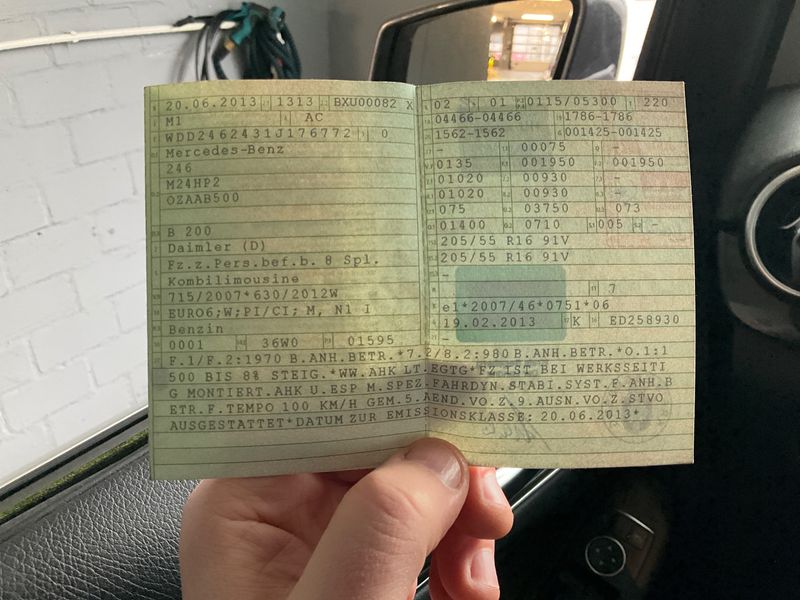 20.06.2013 1313 BXU00082 X
M1 AC
WDD2462431J176772 0
Mercedes-Benz
246
M24HP2
OZAAB500
B 200
Daimler (D)
Fz.z.Pers.bef.b. 8 Spl.
Kombilimousine
715/2007*630/2012W
EURO6;W;PI/CI; M, N1 I
Benzin
0001 36W0 01595
02 01 0115/05300 220
04466-04466 1786-1786
1562-1562 001425-001425
- 00075 -
0135 001950 001950
01020 00930 -
01020 00930 -
075 03750 073
01400 0710 005 -
205/55 R16 91V
205/55 R16 91V
-
- 7
e1*2007/46*0751*06
19.02.2013 K ED258930
F.1/F.2:1970 B.ANH.BETR.*7.2/8.2:980 B.ANH.BETR.*O.1:1
500 BIS 8% STEIG.*WW.AHK LT.EGTG*FZ IST BEI WERKSSEITI
G MONTIERT.AHK U.ESP M.SPEZ.FAHRDYN.STABI.SYST.F.ANH.B
ETR.F.TEMPO 100 KM/H GEM.5.AEND.VO.Z.9.AUSN.VO.Z.STVO
AUSGESTATTET*DATUM ZUR EMISSIONSKLASSE: 20.06.2013*